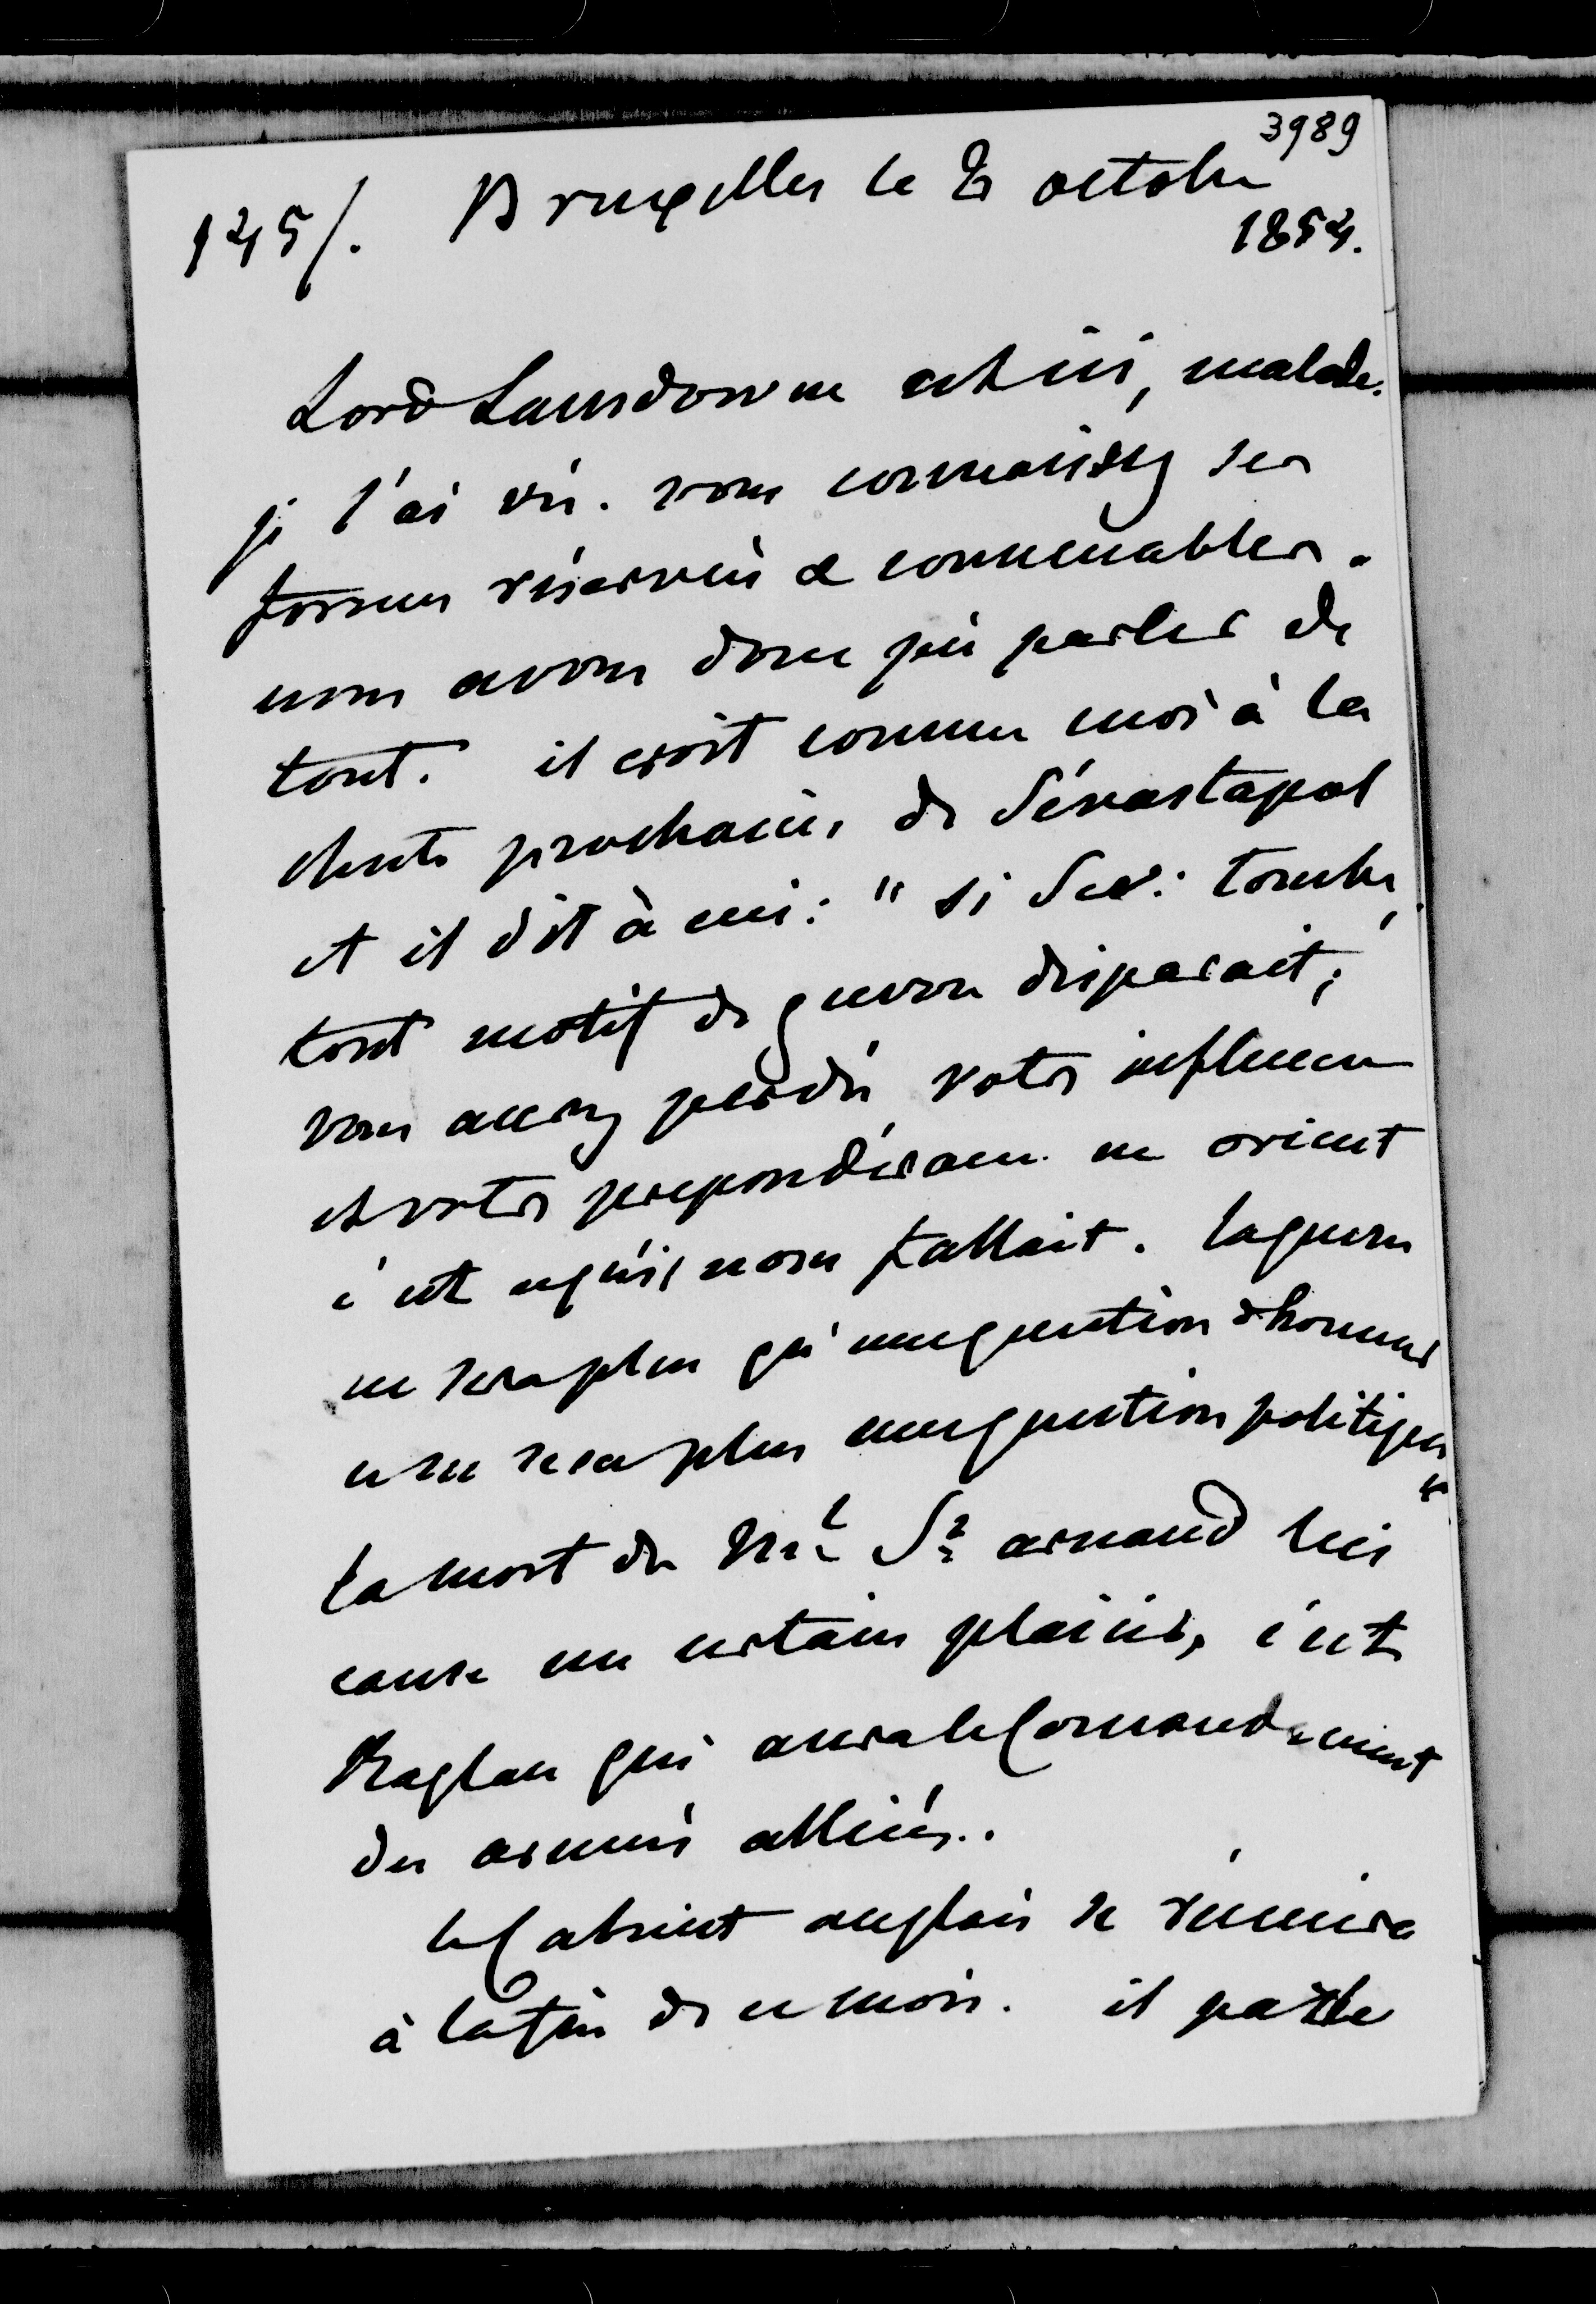 3989
145/. Bruxelles le 8 octobre
1854.
Lord Lansdowne est ici, malade.
je l'ai vu. vous connaissez ses
formes réservées & convenables.
nous avons donc pu parler de
tout. il croit comme moi à la
chute prochaine de Sévastopol
et il dit à ceci : "si Sev: tombe,
tout motif de guerre disparait;
vous aurez perdu votre influence
et votre prepondérance en orient
c'est ce qu'il nous fallait. la guerre
ne sera plus qu'une question d'honneur
ce ne sera plus une question politique"
la mort du Mal St Arnaud lui
cause un certain plaisir, c'est
Raglan qui aura le Commandement
des armées alliées.
le Cabinet anglais se réunira
à la fin de ce mois. il parle